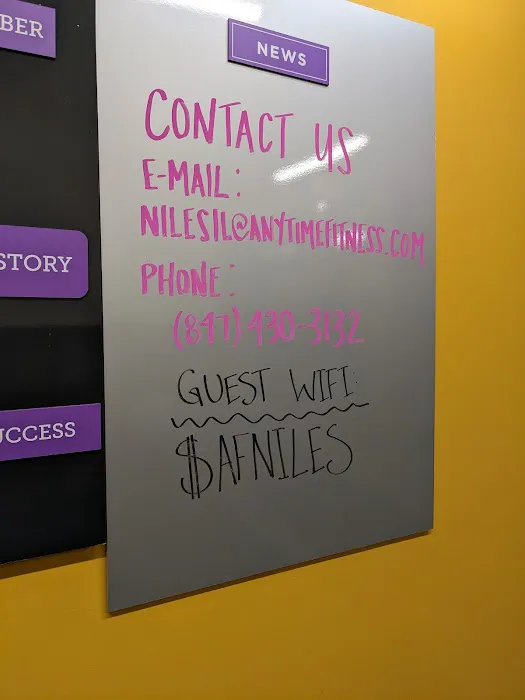 BER
NEWS
CONTACT US
E-MAIL:
NILESIL@ANYTIMEFITNESS.COM
PHONE:
(847) 430-3132
STORY
GUEST WIFI:
$AFNILES
UCCESS